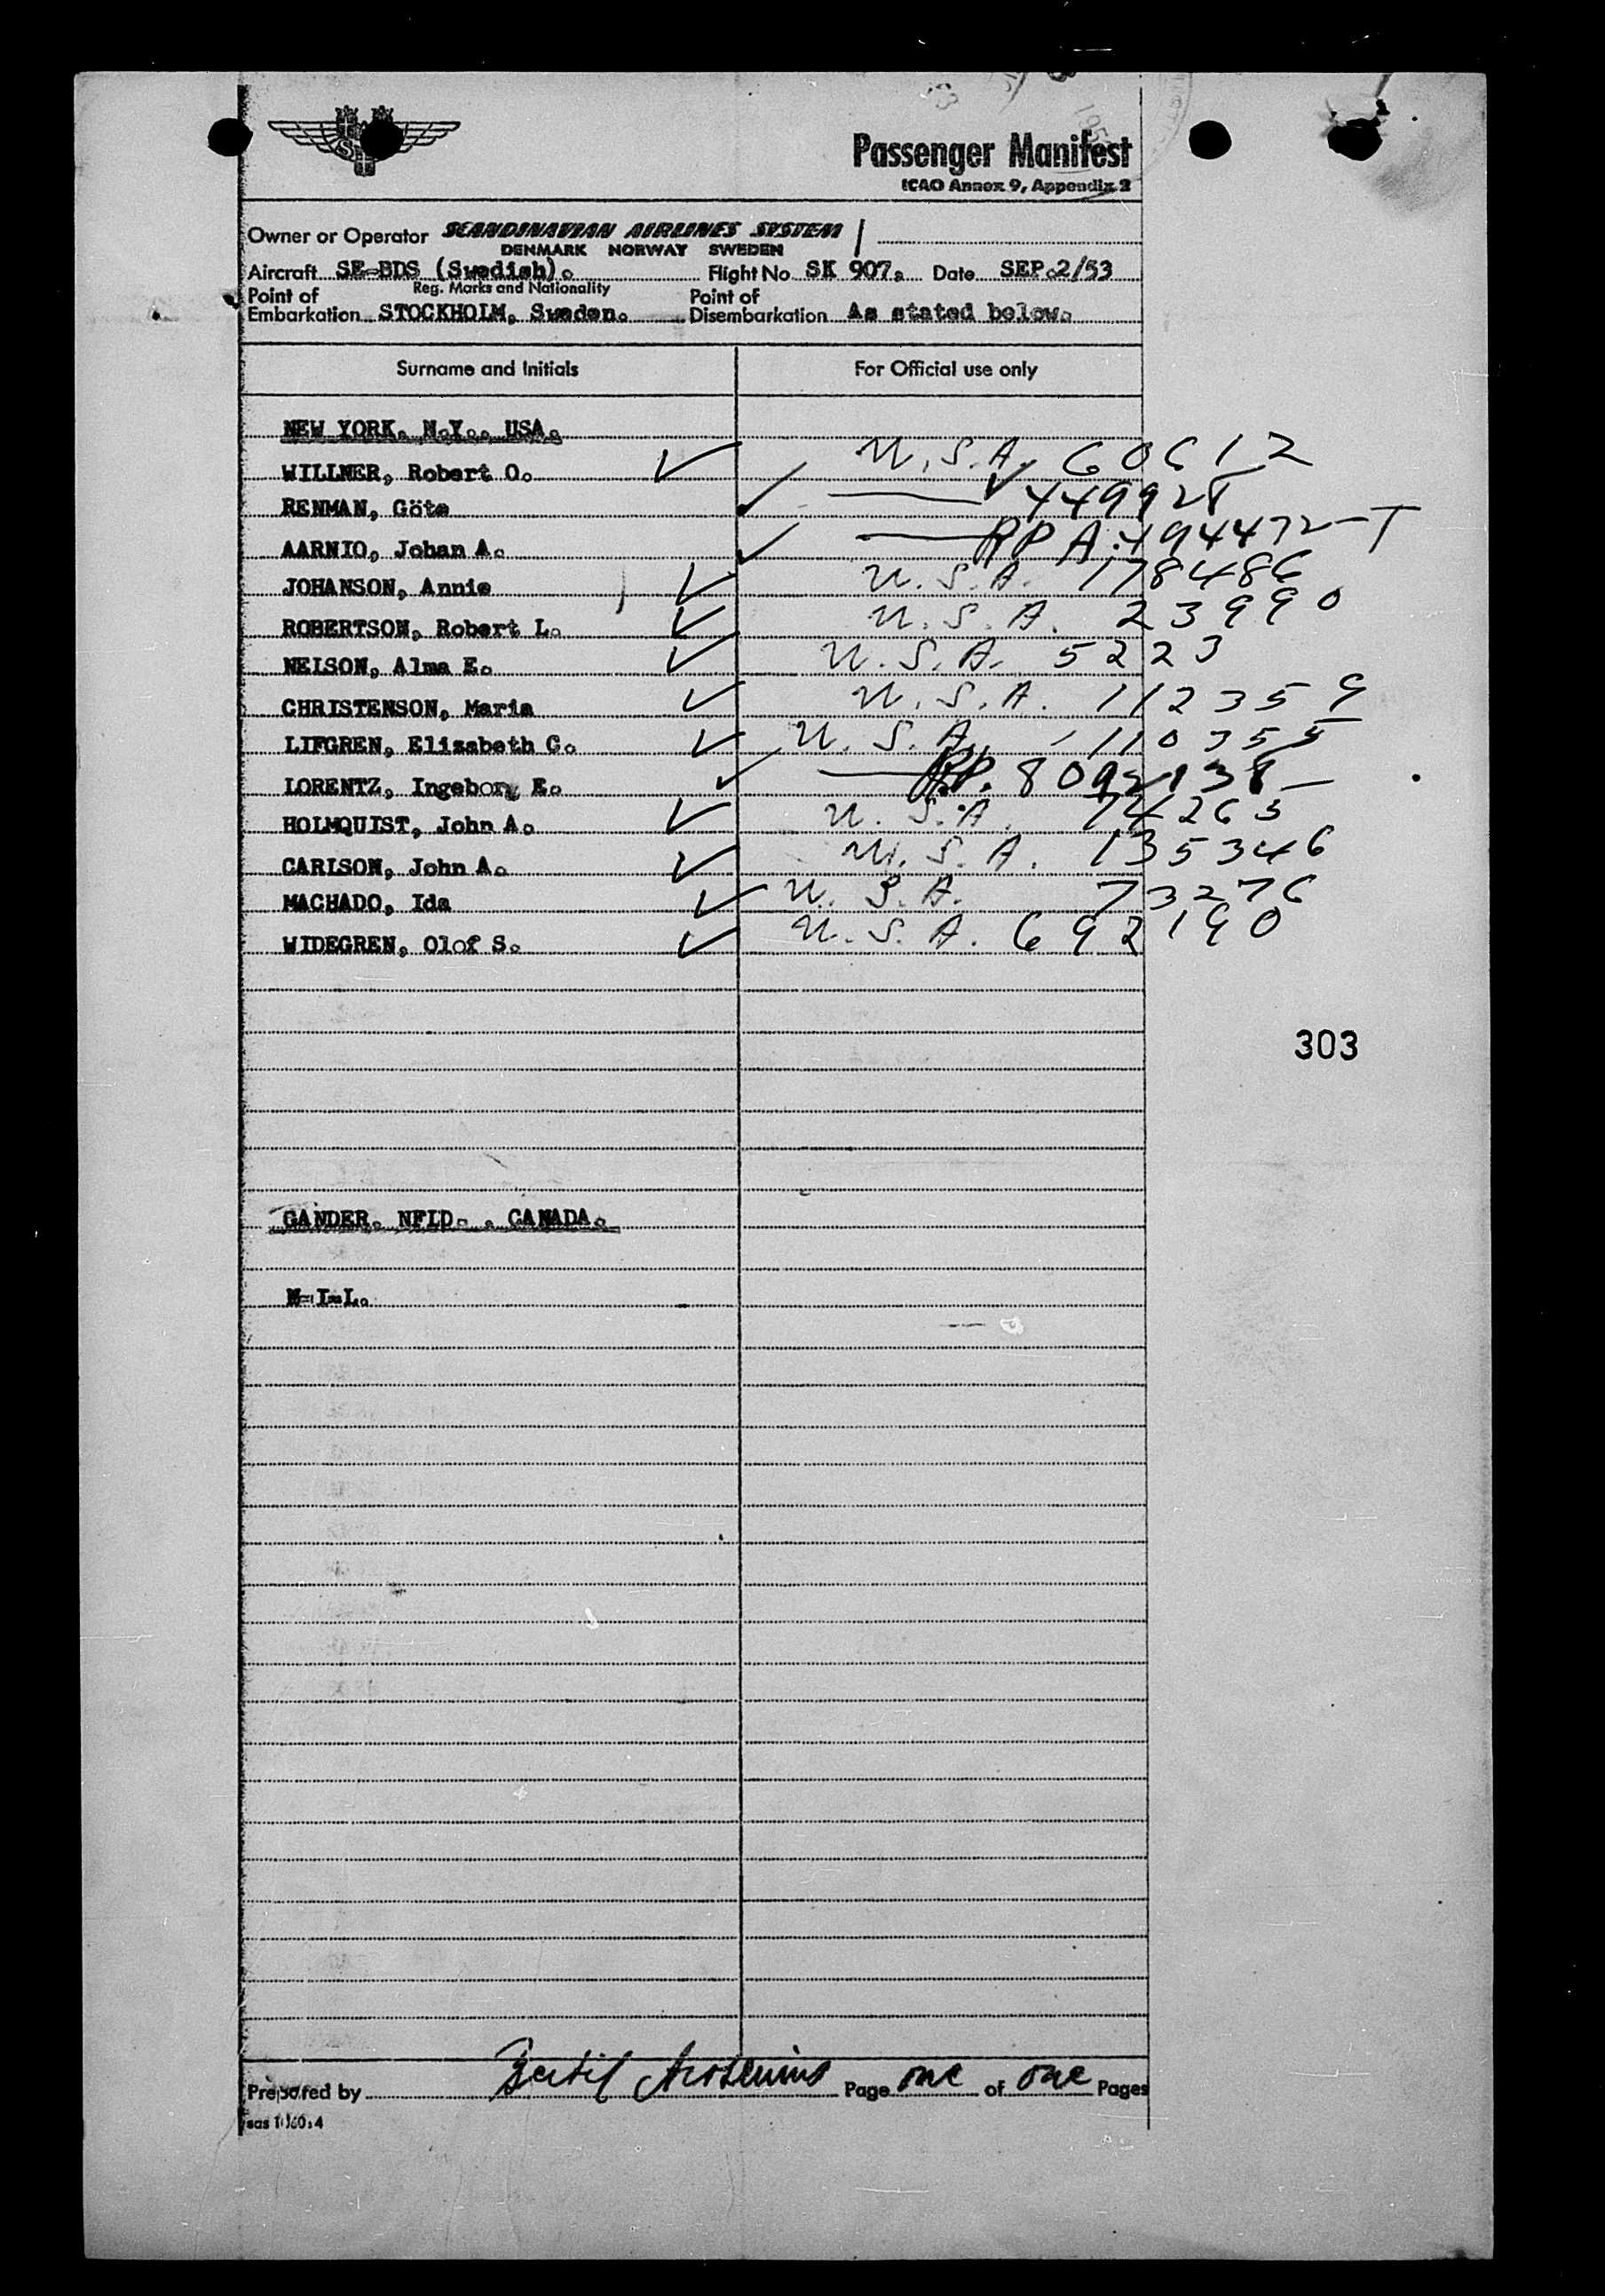 Passenger Manifest
ICAO Annex 9, Appendix 2
Owner or Operator SCANDINAVIAN AIRLINES SYSTEM
DENMARK NORWAY SWEDEN
Aircraft SE-BDS (Swedish). Flight No SK 907. Date SEP.2/53
Reg. Marks and Nationality
Point of Embarkation STOCKHOLM, Sweden. Point of Disembarkation As stated below.
Surname and Initials For Official use only
NEW YORK. N.Y.. USA.
WILLNER, Robert O. U.S.A. 60612
RENMAN, Göte 449928
AARNIO, Johan A. RP A. 494472-T
JOHANSON, Annie U.S.A. 178486
ROBERTSON, Robert L. U.S.A. 23990
NELSON, Alma E. U.S.A. 5223
CHRISTENSON, Maria U.S.A. 112359
LIFGREN, Elizabeth C. U.S.A. 110355
LORENTZ, Ingeborg E. RP. 8092138
HOLMQUIST, John A. U.S.A. 74265
CARLSON, John A. U.S.A. 135346
MACHADO, Ida U.S.A. 73276
WIDEGREN, Olof S. U.S.A. 692190
303
GANDER. NFLD. . CANADA.
N-I-L.
Prepared by Bertil Page one of one Pages